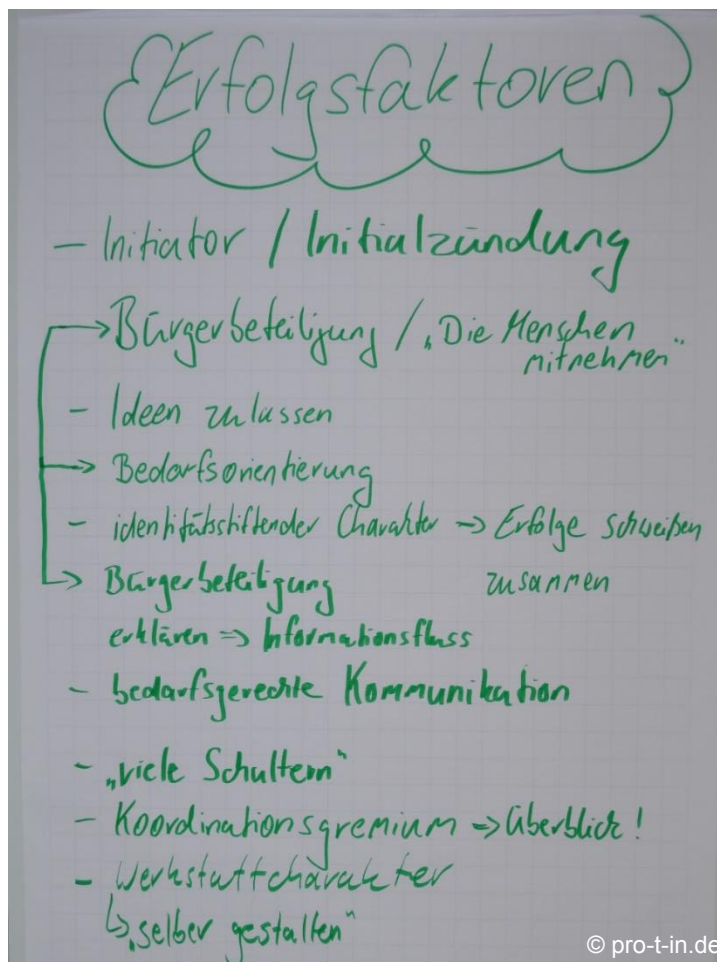 Erfolgsfaktoren
- Initiator / Initialzündung
→ Bürgerbeteiligung / „Die Menschen
mitnehmen"
- Ideen zulassen
→ Bedarfsorientierung
- identitätsstiftender Charakter → Erfolge schweißen
zusammen
→ Bürgerbeteiligung
erklären => Informationsfluss
- bedarfsgerechte Kommunikation
- „viele Schultern"
- Koordinationsgremium => Überblick!
- Werkstattcharakter
↳ „selber gestalten"
© pro-t-in.de